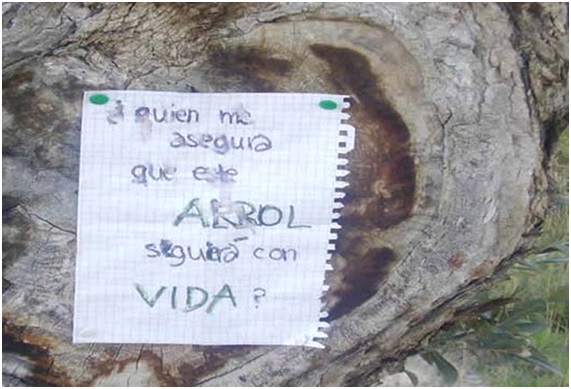 ¿ quien me
asegura
que este
ARBOL
seguirá con
VIDA?